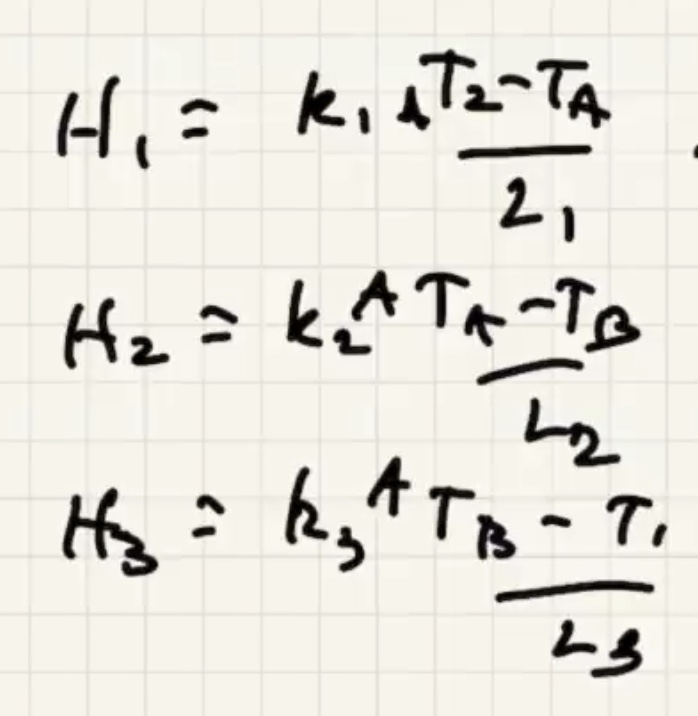 H₁ = k₁ A (T₂ - T_A) / L₁
H₂ = k₂ A (T_A - T_B) / L₂
H₃ = k₃ A (T_B - T₁) / L₃